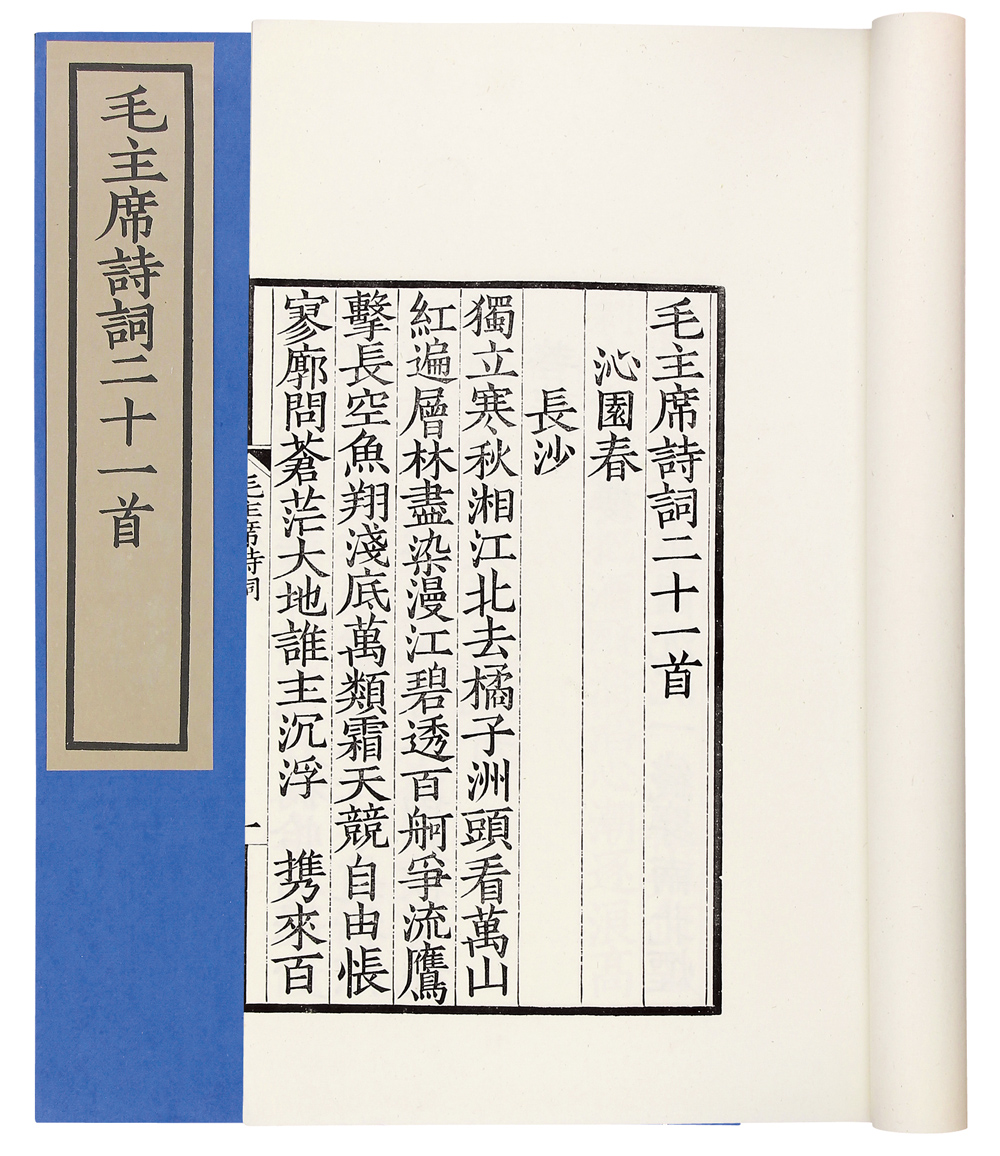 毛主席詩詞二十一首
毛主席詩詞二十一首
沁園春
長沙
獨立寒秋湘江北去橘子洲頭看萬山
紅遍層林盡染漫江碧透百舸爭流鷹
擊長空魚翔淺底萬類霜天競自由悵
寥廓問蒼茫大地誰主沉浮　携來百
毛主席詩詞
一